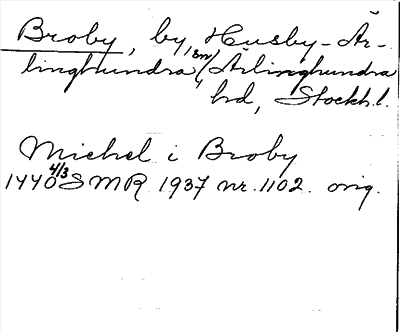 Broby, by, Husby-Är-
linghundra sn, Ärlinghundra
hd, Stockh.l.
Michel i Broby
1440 4/3 SMR 1937 nr. 1102. orig.